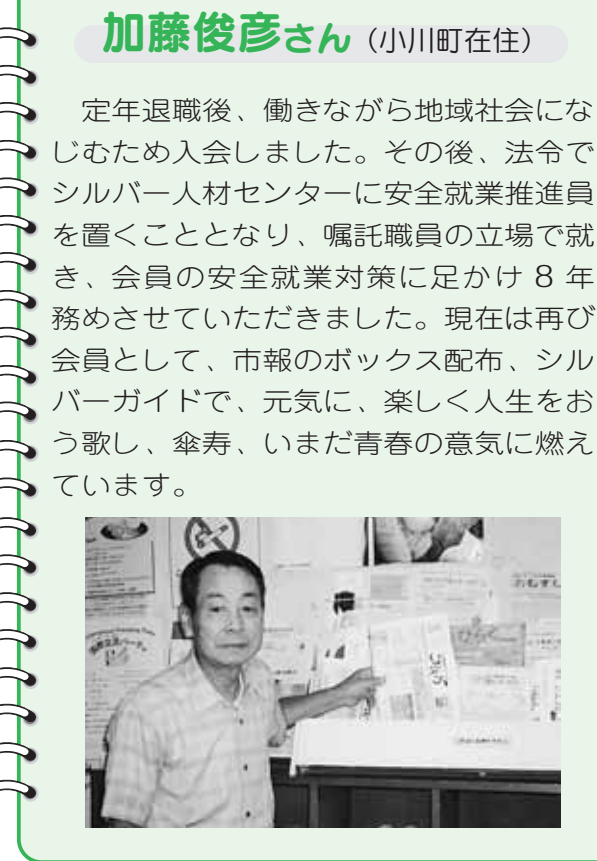 加藤俊彦さん（小川町在住）
　定年退職後、働きながら地域社会にな
じむため入会しました。その後、法令で
シルバー人材センターに安全就業推進員
を置くこととなり、嘱託職員の立場で就
き、会員の安全就業対策に足かけ 8 年
務めさせていただきました。現在は再び
会員として、市報のボックス配布、シル
バーガイドで、元気に、楽しく人生をお
う歌し、傘寿、いまだ青春の意気に燃え
ています。
おむすび